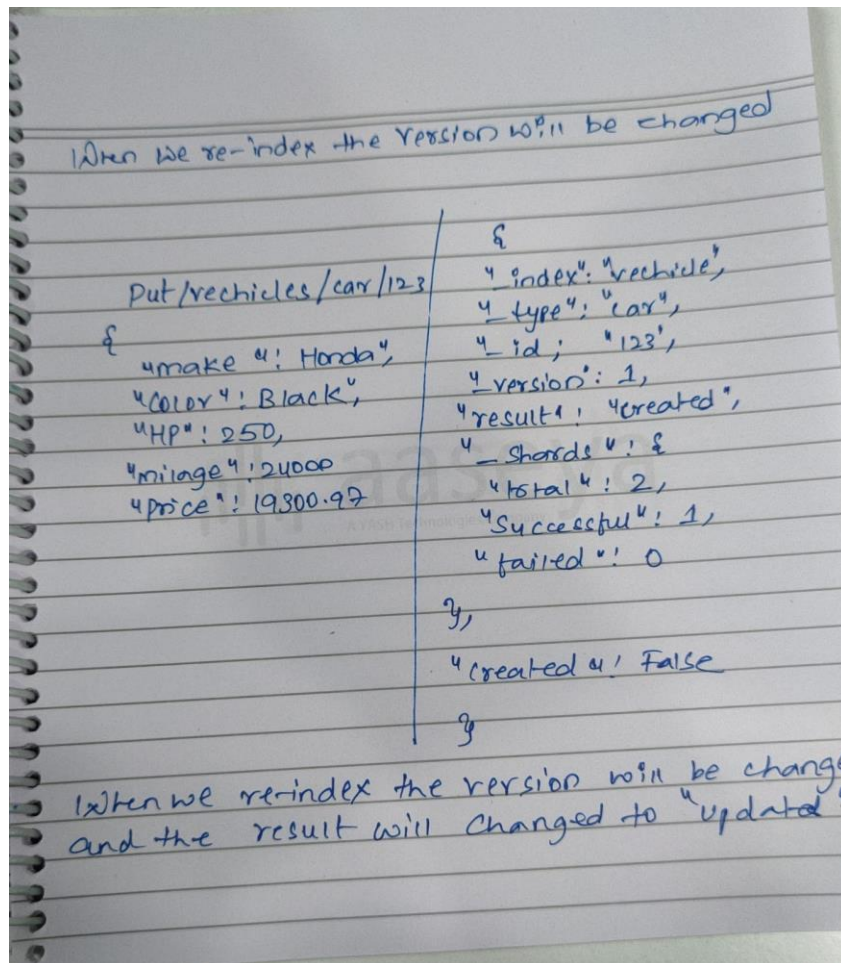 When we re-index the version will be changed
Put/vechicles/car/123
{
"make": Honda",
"color": Black",
"HP": 250,
"milage": 24000
"price": 19300.97
{
"_index": "vechicle",
"_type": "car",
"_id; "123",
"_version": 1,
"result": "created",
"_shards": {
"total": 2,
"Successful": 1,
"failed": 0
},
"created": False
}
aaseya
When we re-index the version will be change
and the result will changed to "updated"